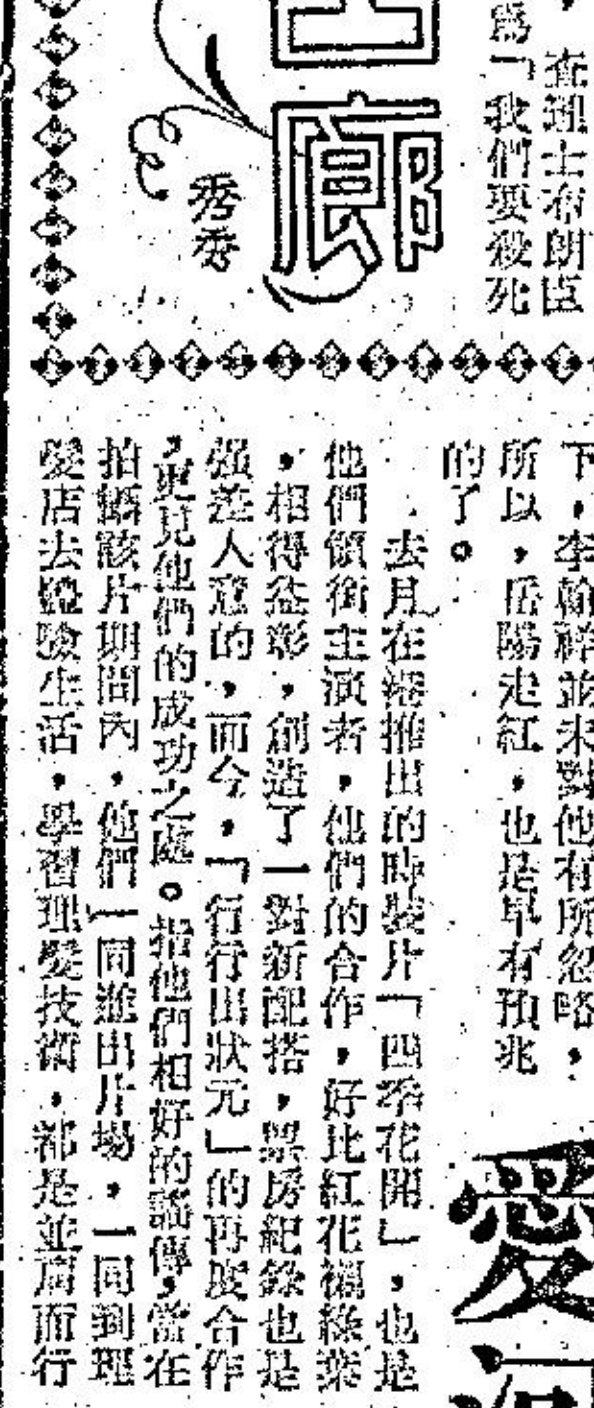 ，查理士布朗臣
爲「我們要殺死
廊
秀秀
下，李翰祥並未對他有所忽略，
所以，岳陽走紅，也是早有預兆
的了。
去月在港推出的時裝片「四季花開」，也是
他們領銜主演者，他們的合作，好比紅花襯綠葉
，相得益彰，創造了一對新配搭，票房紀錄也是
强差人意的，而今，「行行出狀元」的再度合作
，更見他們的成功之處。指他們相好的謠傳，當在
拍攝該片期間內，他們一同進出片場，一同到理
髮店去體驗生活，學習理髮技術，都是並肩而行
愛